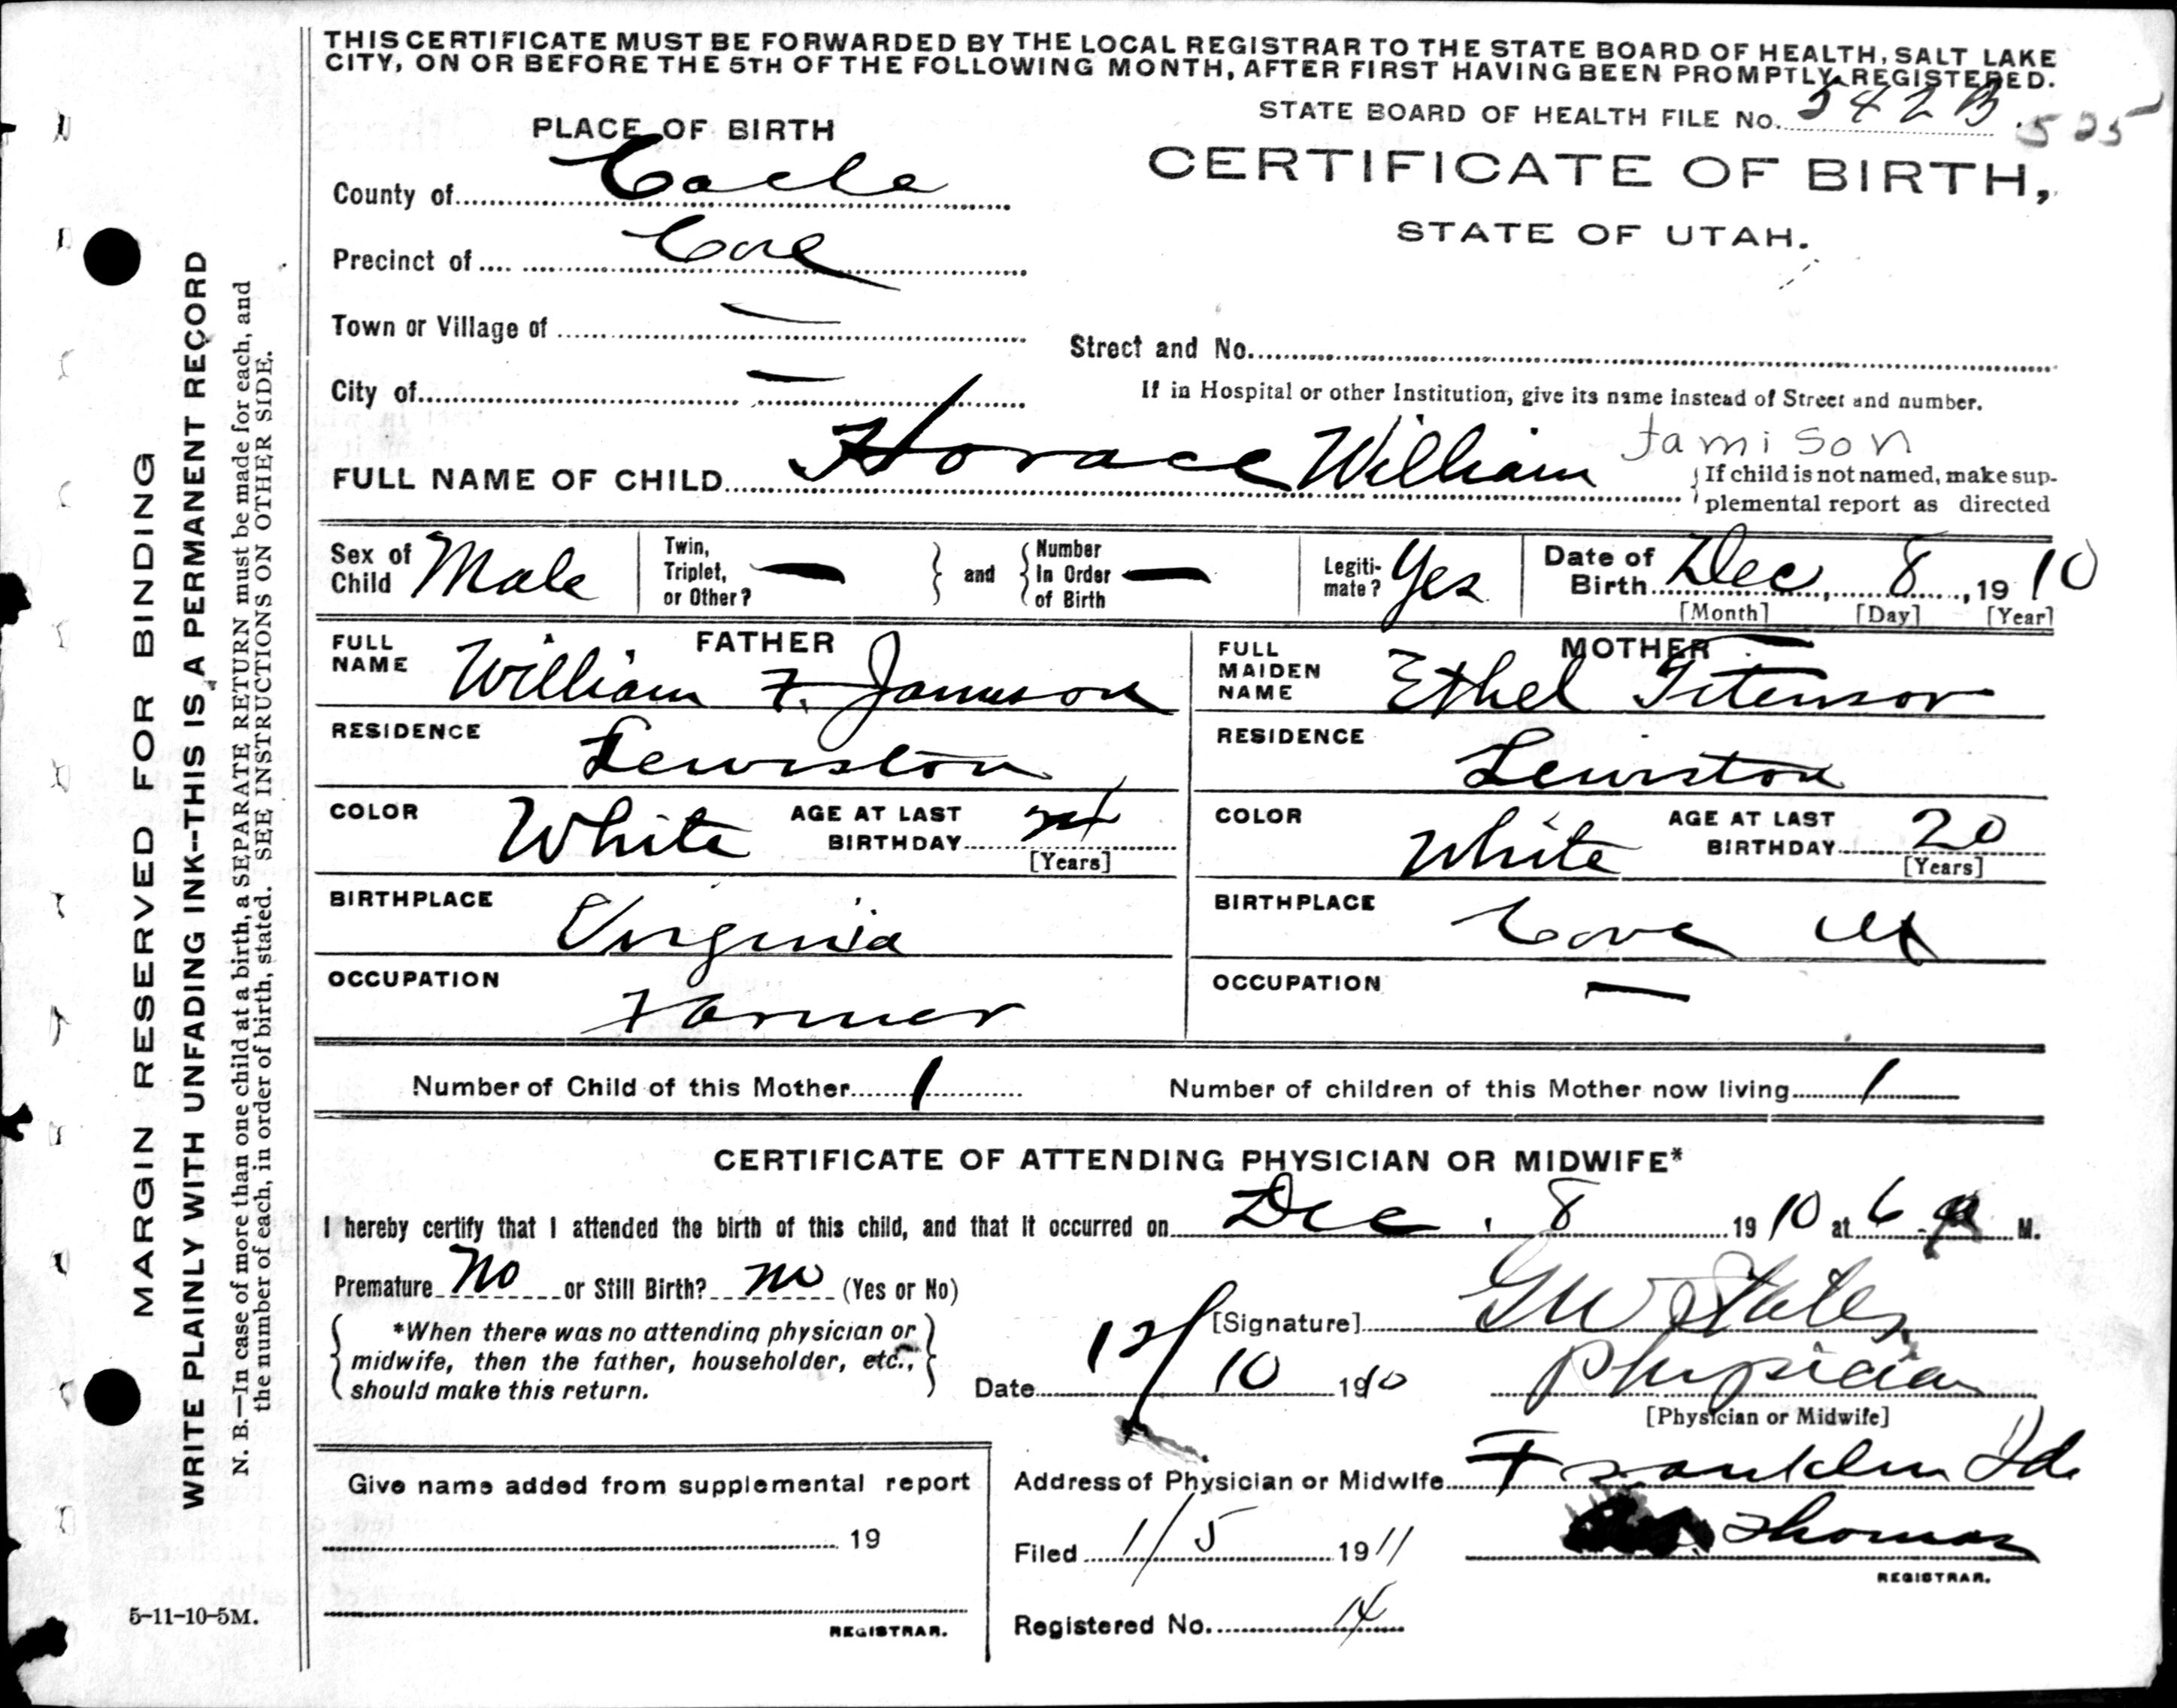 THIS CERTIFICATE MUST BE FORWARDED BY THE LOCAL REGISTRAR TO THE STATE BOARD OF HEALTH, SALT LAKE
CITY, ON OR BEFORE THE 5TH OF THE FOLLOWING MONTH, AFTER FIRST HAVING BEEN PROMPTLY REGISTERED.
STATE BOARD OF HEALTH FILE No. 342 B 525
PLACE OF BIRTH
CERTIFICATE OF BIRTH,
STATE OF UTAH.
County of Cache
Precinct of Cove
Town or Village of —
Street and No.
City of —
If in Hospital or other Institution, give its name instead of Street and number.
FULL NAME OF CHILD Horace William Jamison
If child is not named, make sup-
plemental report as directed
Sex of Child Male
Twin, Triplet, or Other? —
and
Number In Order of Birth —
Legiti-
mate? Yes
Date of Birth Dec, 8, 1910
[Month] [Day] [Year]
FATHER
FULL NAME William F. Jamison
RESIDENCE Lewiston
COLOR White
AGE AT LAST BIRTHDAY
[Years]
BIRTHPLACE Virginia
OCCUPATION Farmer
MOTHER
FULL MAIDEN NAME Ethel Titensor
RESIDENCE Lewiston
COLOR White
AGE AT LAST BIRTHDAY 20
[Years]
BIRTHPLACE Cove Ut
OCCUPATION —
Number of Child of this Mother 1
Number of children of this Mother now living 1
CERTIFICATE OF ATTENDING PHYSICIAN OR MIDWIFE*
I hereby certify that I attended the birth of this child, and that it occurred on Dec. 8 1910 at 6 a M.
Premature No or Still Birth? no (Yes or No)
*When there was no attending physician or
midwife, then the father, householder, etc.,
should make this return.
[Signature] GW States
Date 12/10 1910
Physician
[Physician or Midwife]
Give name added from supplemental report
19
REGISTRAR.
Address of Physician or Midwife Franklin Ida
Filed 1/5 1911
Thomas
REGISTRAR.
Registered No. 14
MARGIN RESERVED FOR BINDING
WRITE PLAINLY WITH UNFADING INK--THIS IS A PERMANENT RECORD
N. B.—In case of more than one child at a birth, a SEPARATE RETURN must be made for each, and
the number of each, in order of birth, stated. SEE INSTRUCTIONS ON OTHER SIDE.
5-11-10-5M.